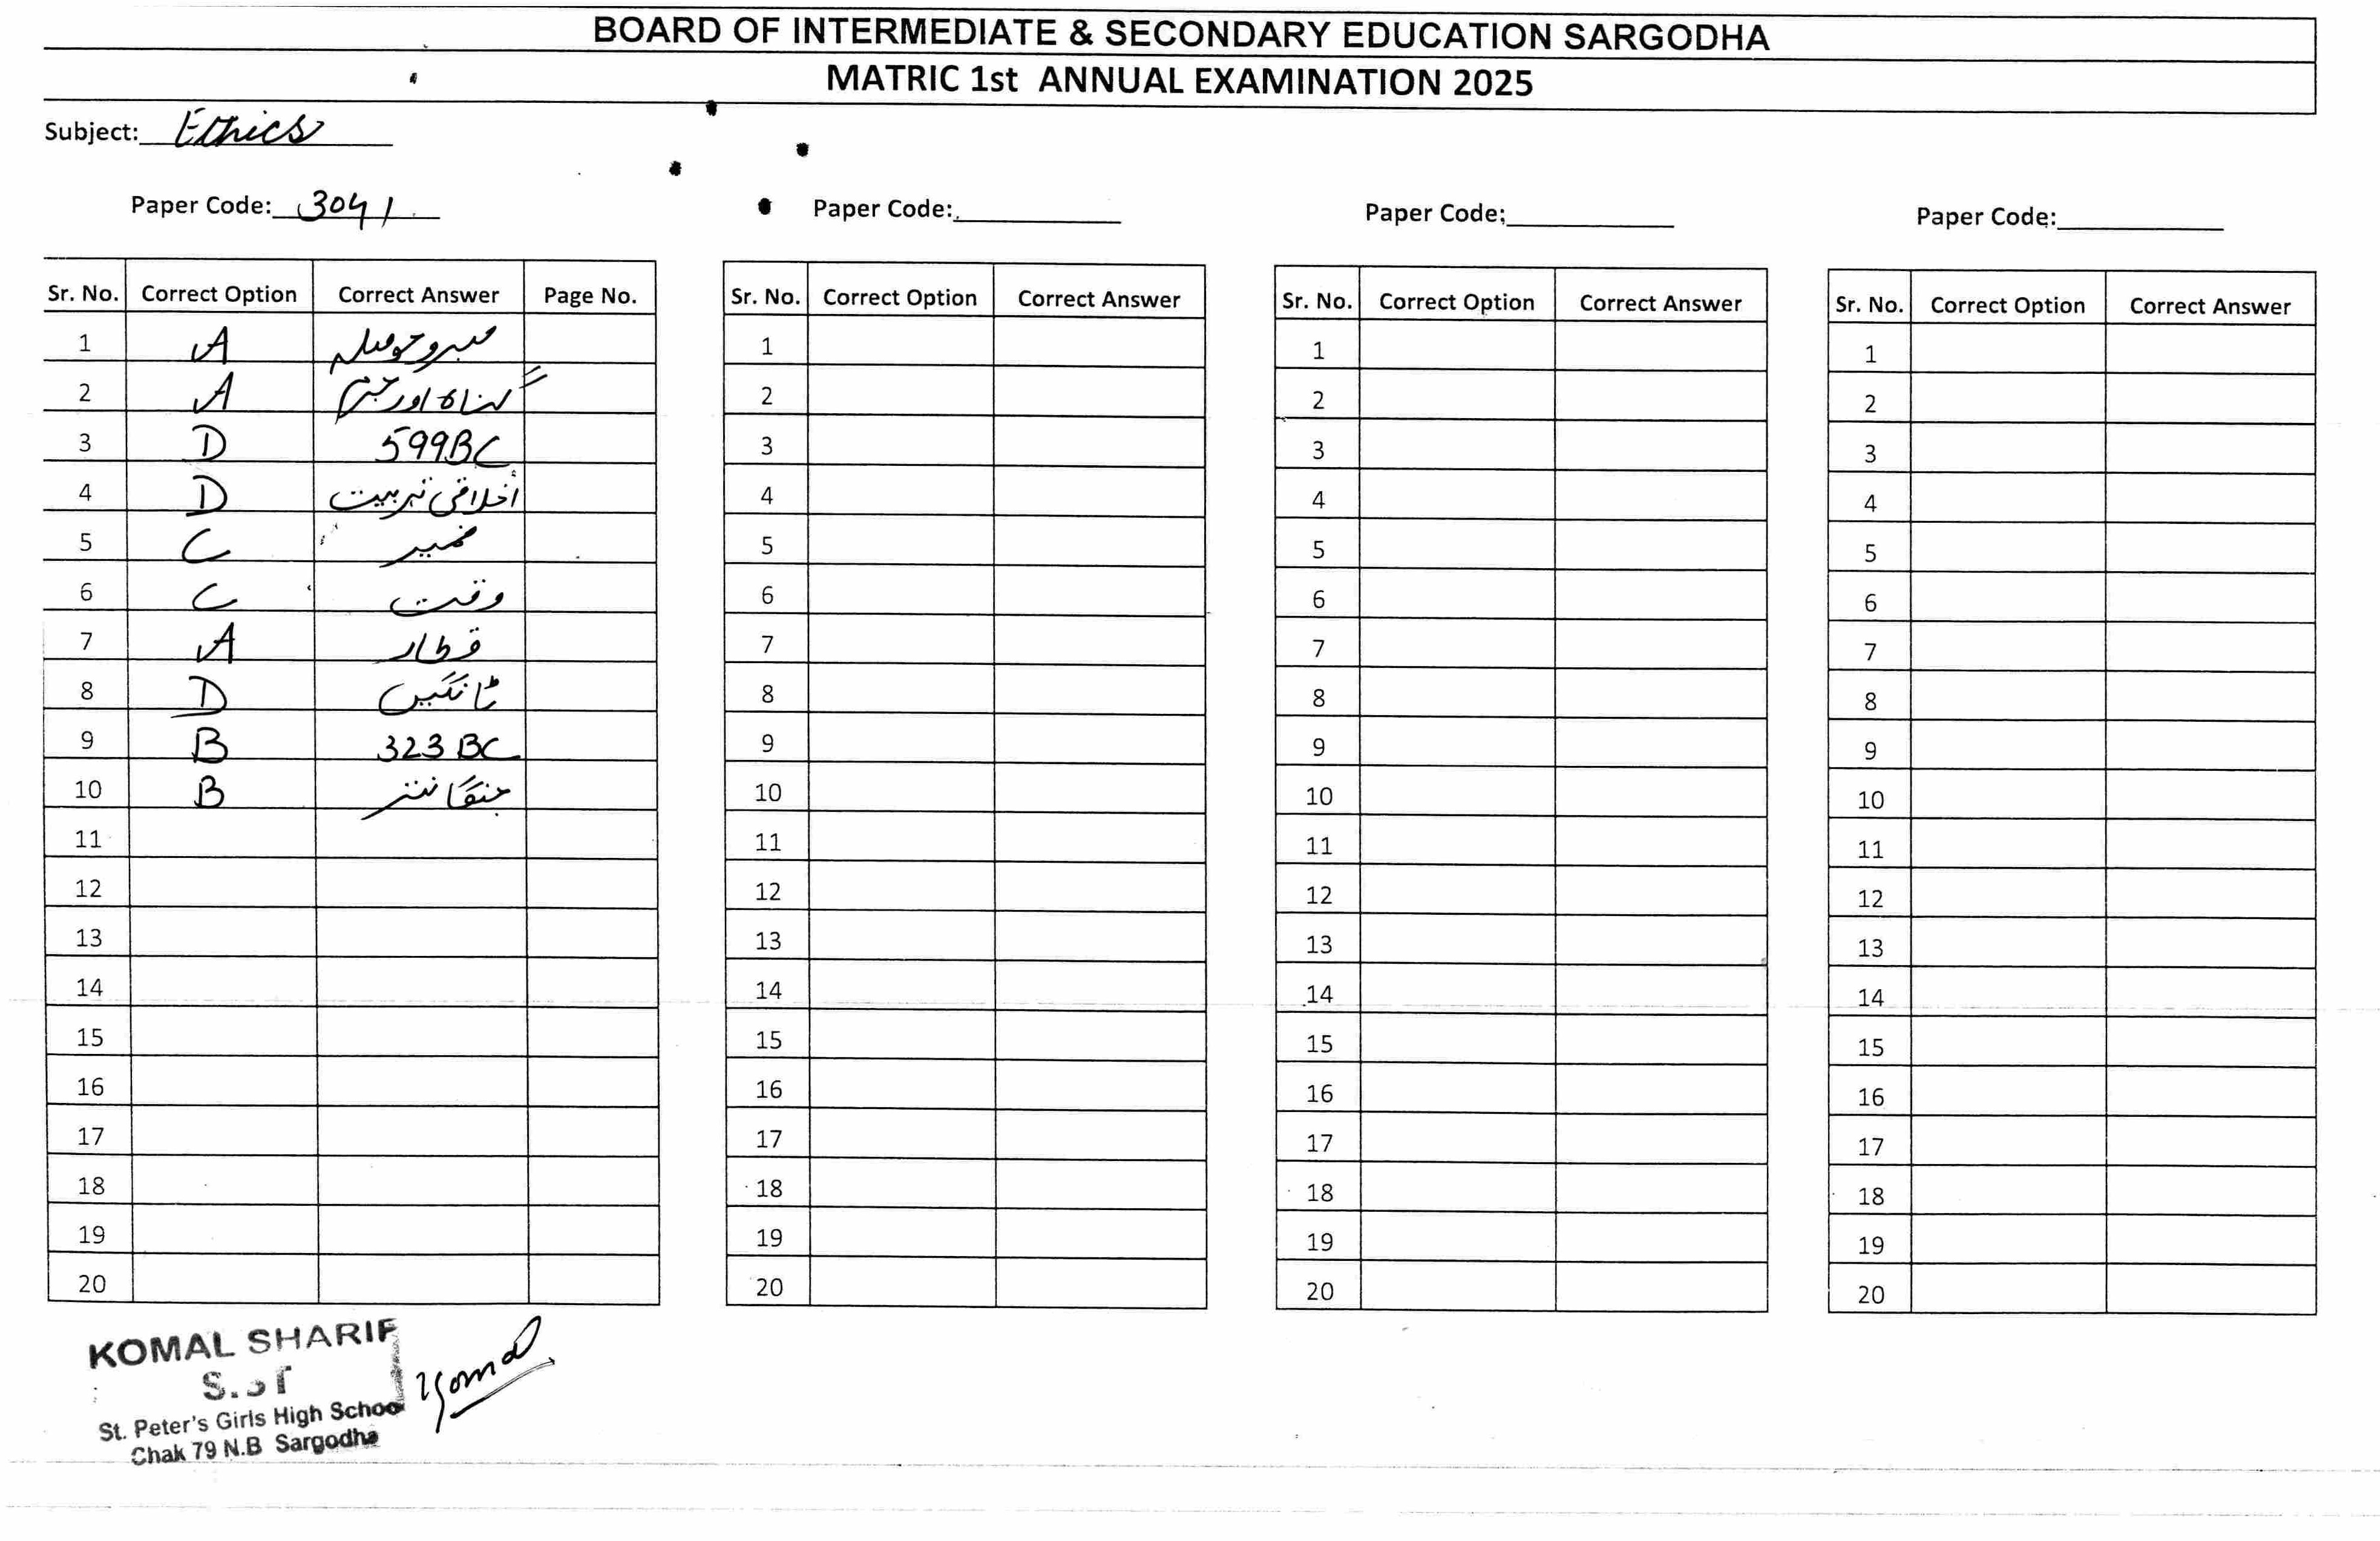 BOARD OF INTERMEDIATE & SECONDARY EDUCATION SARGODHA
MATRIC 1st ANNUAL EXAMINATION 2025
Subject: Ethics
Paper Code: 3041 Paper Code: Paper Code: Paper Code:
Sr. No. Correct Option Correct Answer Page No. Sr. No. Correct Option Correct Answer Sr. No. Correct Option Correct Answer Sr. No. Correct Option Correct Answer
1 A صبر و حوصلہ 1 1 1
2 A گناہ اور جرم 2 2 2
3 D 599BC 3 3 3
4 D اخلاقی تربیت 4 4 4
5 C ضمیر 5 5 5
6 C وقت 6 6 6
7 A قطار 7 7 7
8 D ٹانگیں 8 8 8
9 B 323 BC 9 9 9
10 B 10 10 10
11 11 11 11
12 12 12 12
13 13 13 13
14 14 14 14
15 15 15 15
16 16 16 16
17 17 17 17
18 18 18 18
19 19 19 19
20 20 20 20
KOMAL SHARIF
St. Peter's Girls High School
Chak 79 N.B Sargodha